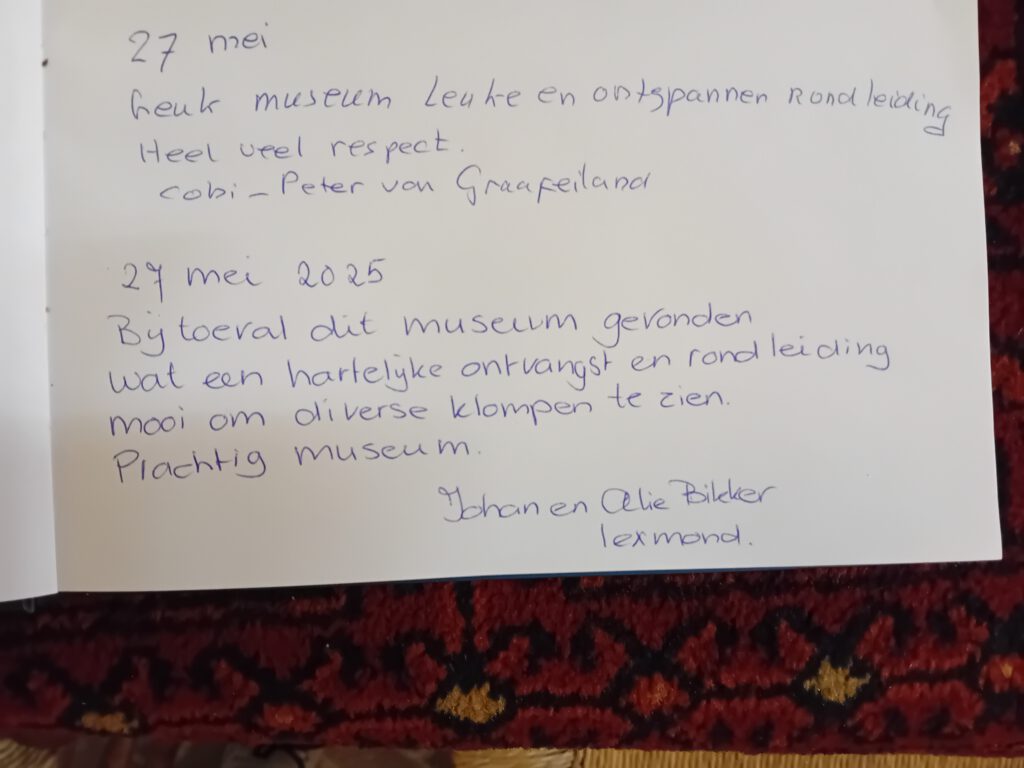 27 mei
Leuk museum Leuke en ontspannen Rondleiding
Heel veel respect.
cobi - Peter van Graafeiland
27 mei 2025
Bij toeval dit museum gevonden
wat een hartelijke ontvangst en rondleiding
mooi om diverse klompen te zien.
Prachtig museum.
Johan en Alie Bikker
lexmond.